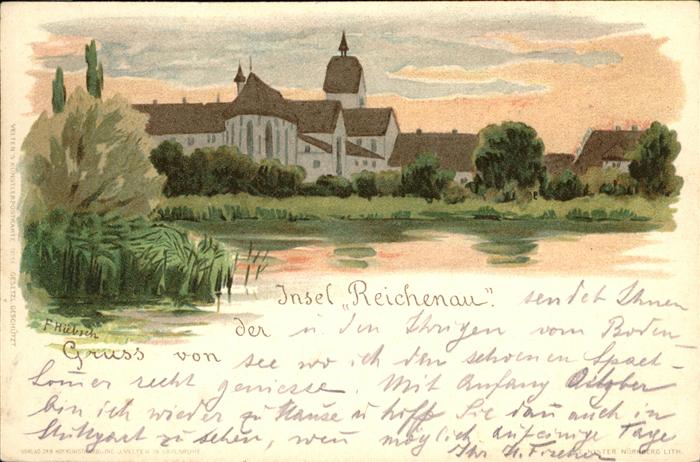 VELTEN'S KÜNSTLERPOSTKARTE GESETZL. GESCHÜTZT
F Hübsch
Gruss von der Insel „Reichenau“.
sendet Ihnen
u den Ihrigen vom Boden-
see wo ich den schoenen Spaet-
somer recht geniesse. Mit Anfang October
bin ich wieder zu Hause u hoffe Sie dan auch in
Stuttgart zu sehen, wen möglich auf einige Tage
Ihr H. Fischer
VERLAG DER HOFKUNSTHANDLUNG J. VELTEN IN KARLSRUHE
NISTER NÜRNBERG LITH.